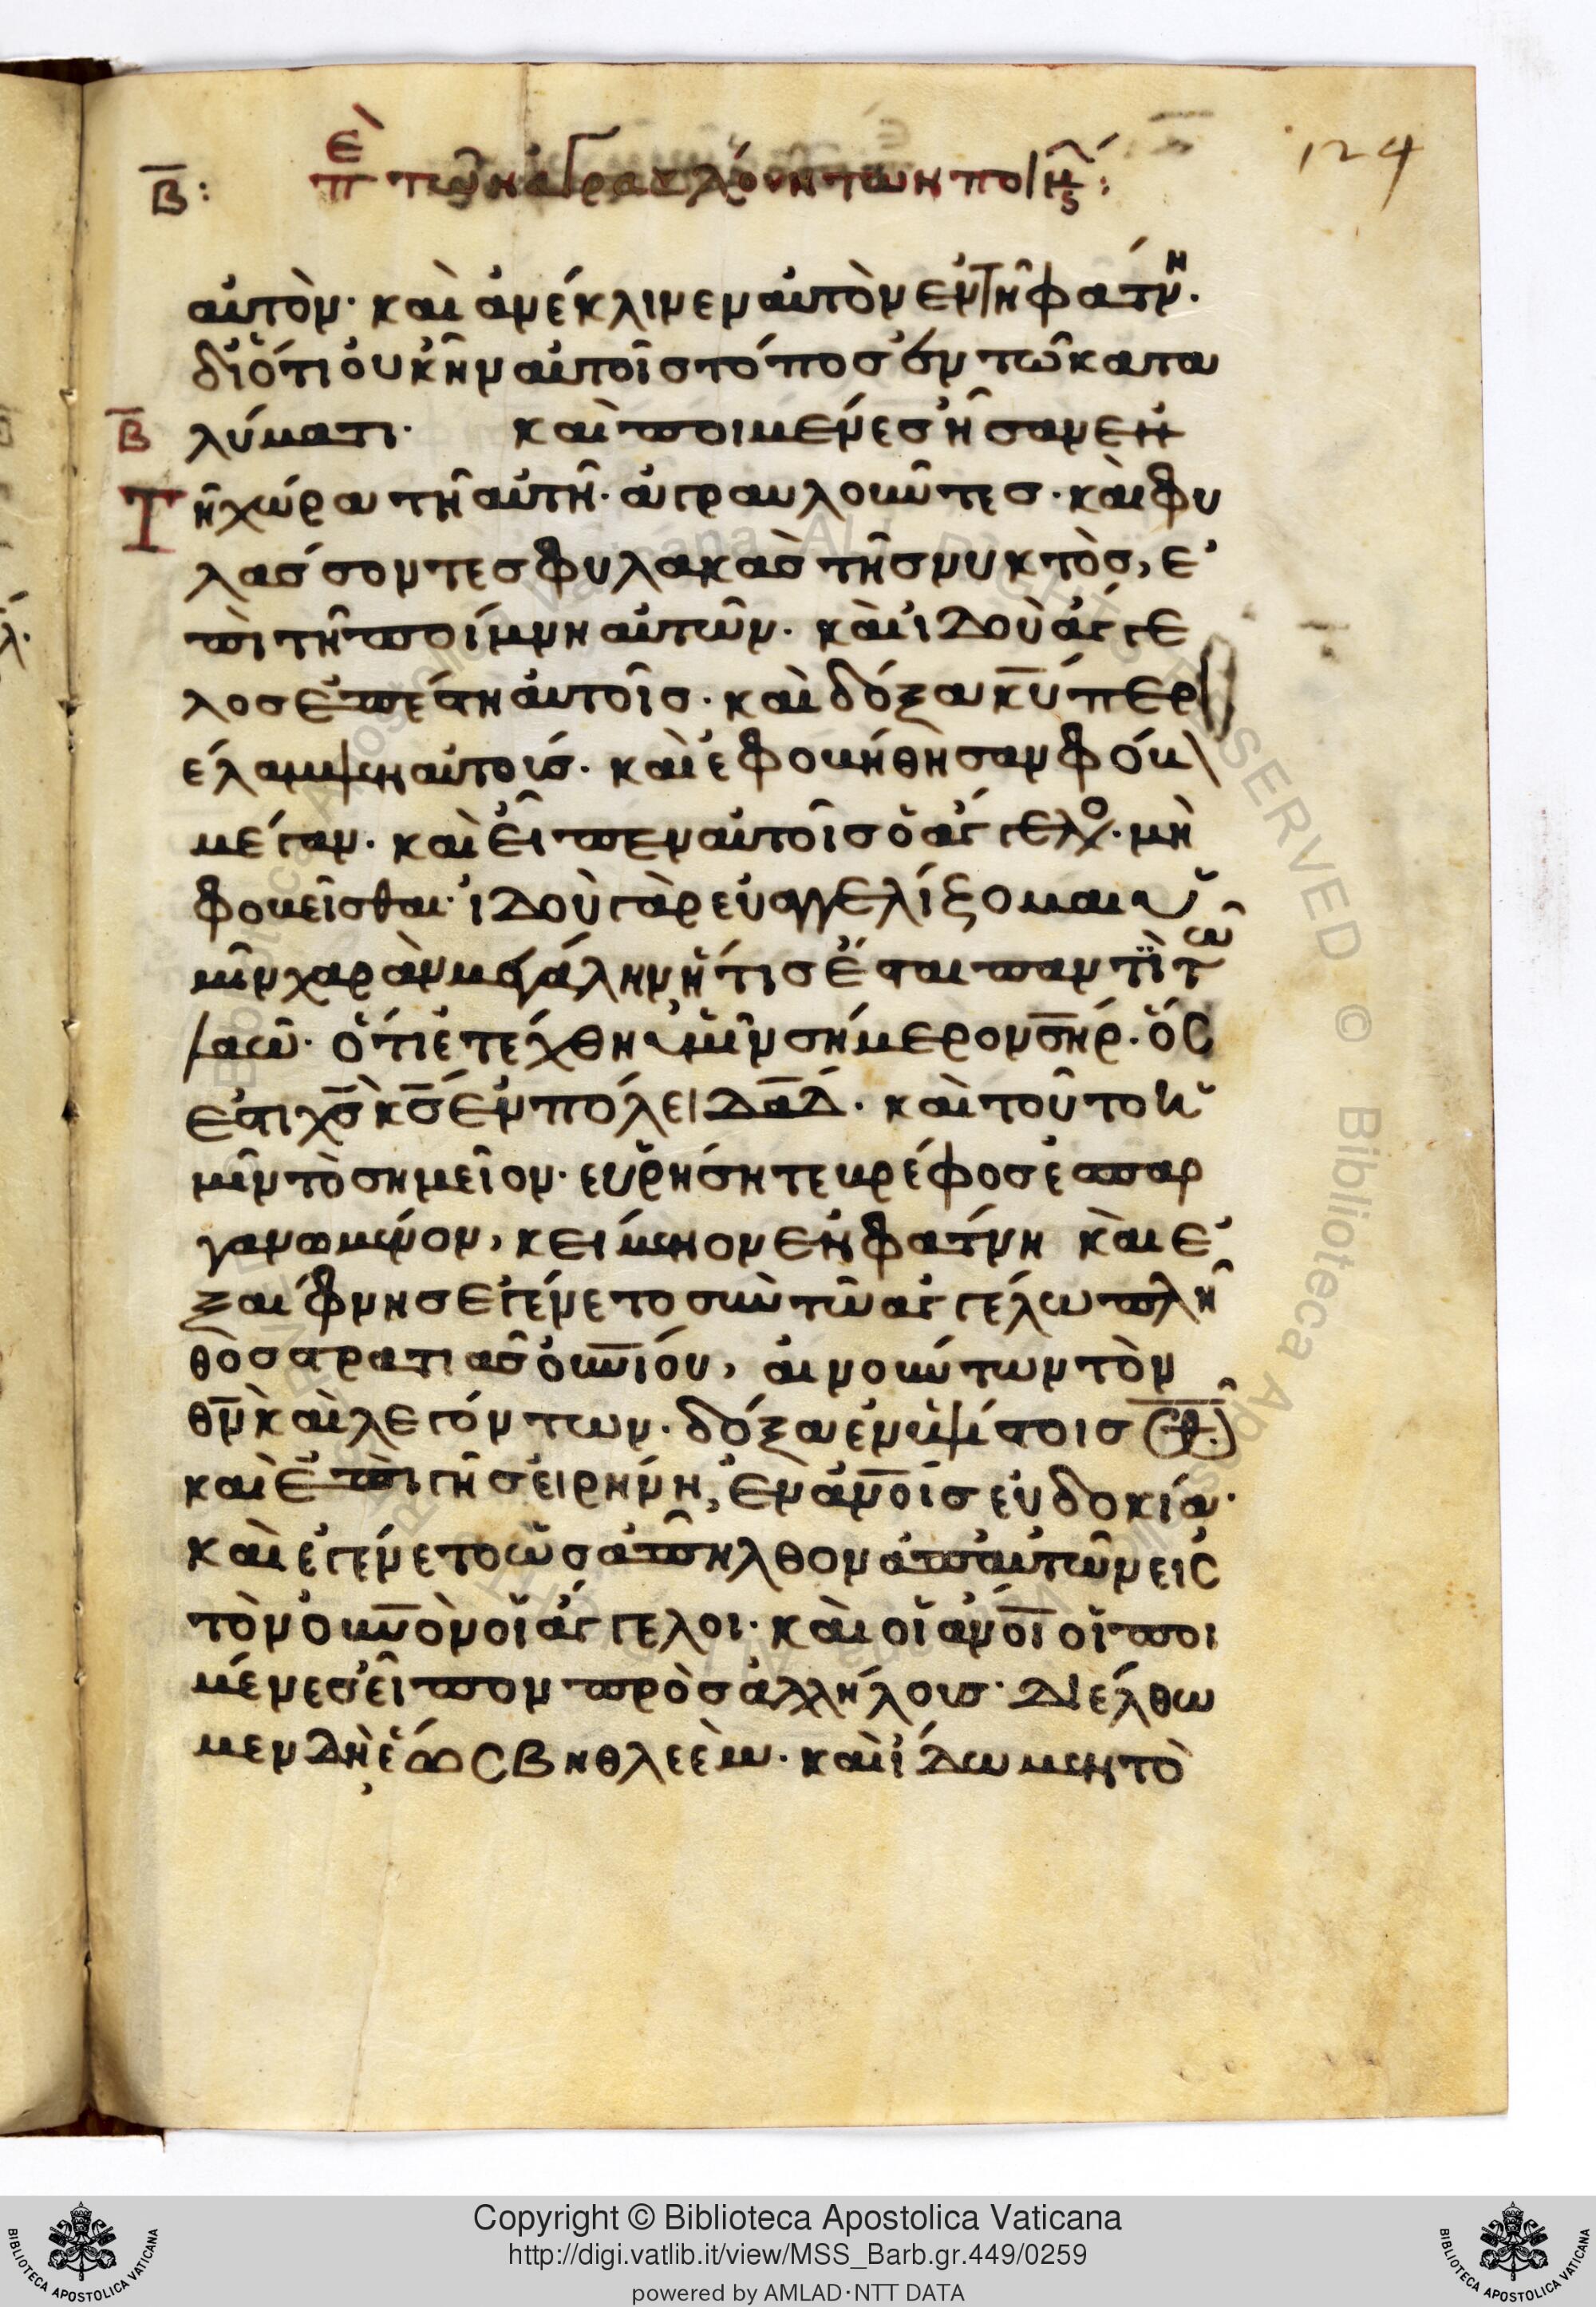 124
Β̅: ἐπ τῶν ἀγραυλόυντων ποι
αὐτὸν· καὶ ἀνέκλινεν αὐτὸν ἐν τῆ φάτνη.
διότι οὐκ ἦν αὐτοῖς τόπος ἐν τῶ κατα
Β̅ λύματι· καὶ ποιμένες ἦσαν ἐν
Τῆ χώρα τῆ αὐτῆ· ἀγραυλοῦντες· καὶ φυ
λάσσοντες φυλακὰς τῆς νυκτὸς, ἐ
πὶ τὴ ποίμνη αὐτῶν· καὶ ἰδοὺ ἄγγε
λος ἐπέστη αὐτοῖς· καὶ δόξα κ̅υ̅ περι
έλαμψεν αὐτούς· καὶ ἐφοβήθησαν φόβ
μέγαν· καὶ εἶπεν αὐτοῖς ὁ ἄγγελος· μὴ
φοβεῖσθαι· ἰδοὺ γὰρ εὐαγγελίζομαι ὑ
μῖν χαρὰν μεγάλην ἥτις ἔσται παντὶ τῶ
λαῶ· ὅτι ἐτέχθη ὑμῖν σήμερον σ̅η̅ρ̅· ὅς
ἐστι χ̅ς̅ κ̅ς̅ ἐν πόλει δ̅α̅δ̅· καὶ τοῦτο ὑ
μῖν τὸ σημεῖον· εὑρήσητε βρέφος ἐσπαρ
γανωμένον, κείμενον ἐν φάτνη καὶ ἐ
ξαίφνης ἐγένετο σὺν τῶ ἀγγέλω πλῆ
θος στρατιᾶς ὀυ̅ν̅ίου, αἰνούντων τὸν
θ̅ν̅ καὶ λεγόντων· δόξα ἐν ὑψίστοις θ̅ω̅
καὶ ἐπὶ γῆς εἰρήνη, ἐν ἀ̅ν̅οις εὐδοκία·
καὶ ἐγένετο ὡς ἀπῆλθον ἀπ' αὐτῶν εἰς
τὸν ὀυ̅ν̅ὸν οἱ ἄγγελοι· καὶ οἱ ἀ̅ν̅ο̅ι̅ οἱ ποι
μένες εἶπον πρὸς ἀλλήλους· διέλθω
μεν δὴ ἕως βηθλεὲμ· καὶ ἴδωμεν τὸ
Copyright © Biblioteca Apostolica Vaticana
http://digi.vatlib.it/view/MSS_Barb.gr.449/0259
powered by AMLAD·NTT DATA